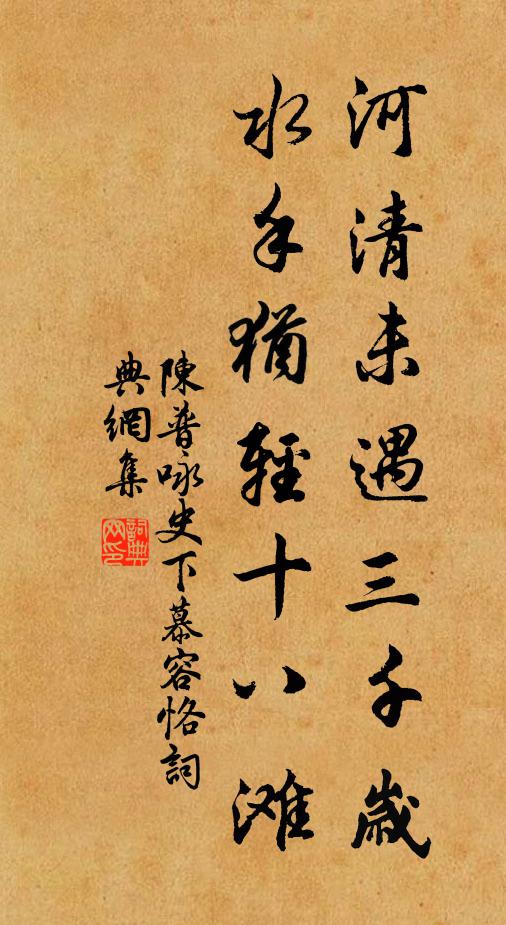 河清未遇三千歲
水手猶輕十八滩
陳普咏史下慕容恪詞
典網集
詞典网印